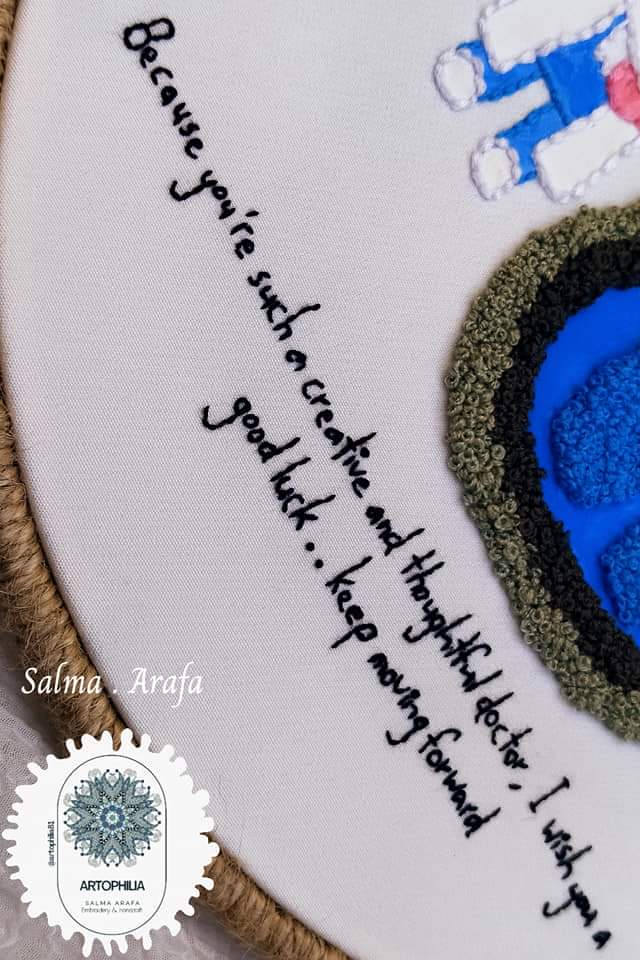 Because you're such a creative and thoughtful doctor, I wish you a
good luck.. keep moving forward
Salma . Arafa
@artophilia81
ARTOPHILIA
SALMA ARAFA